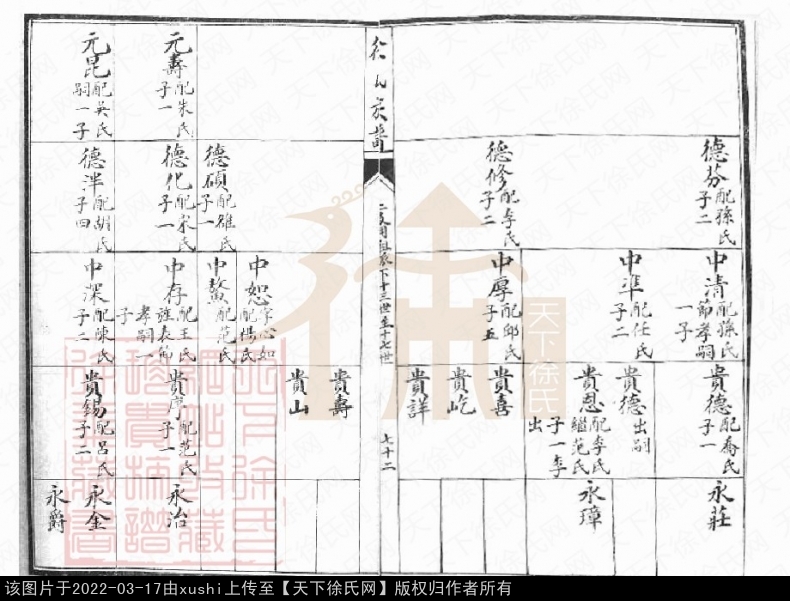 德芬配孫氏子二
德修配李氏子二
中清配孫氏節孝嗣一子
中準配任氏子二
中厚配邱氏子五
貴德配喬氏子一
貴德出嗣
貴恩配李氏繼范氏子一李出
貴喜
貴屹
貴詳
永莊
永璋
徐氏家譜
七十二
元壽配朱氏子一
元昆配吳氏嗣一子
德碩配雒氏子一
德化配宋氏子一
德泮配胡氏子四
中恕字心如配楊氏
中鰲配范氏
中存配王氏旌表節孝嗣一子
中深配陳氏子二
貴壽
貴山
貴序配范氏子一
貴錫配呂氏子二
永治
永金
永爵
天下徐氏网
该图片于2022-03-17由xushi上传至【天下徐氏网】版权归作者所有